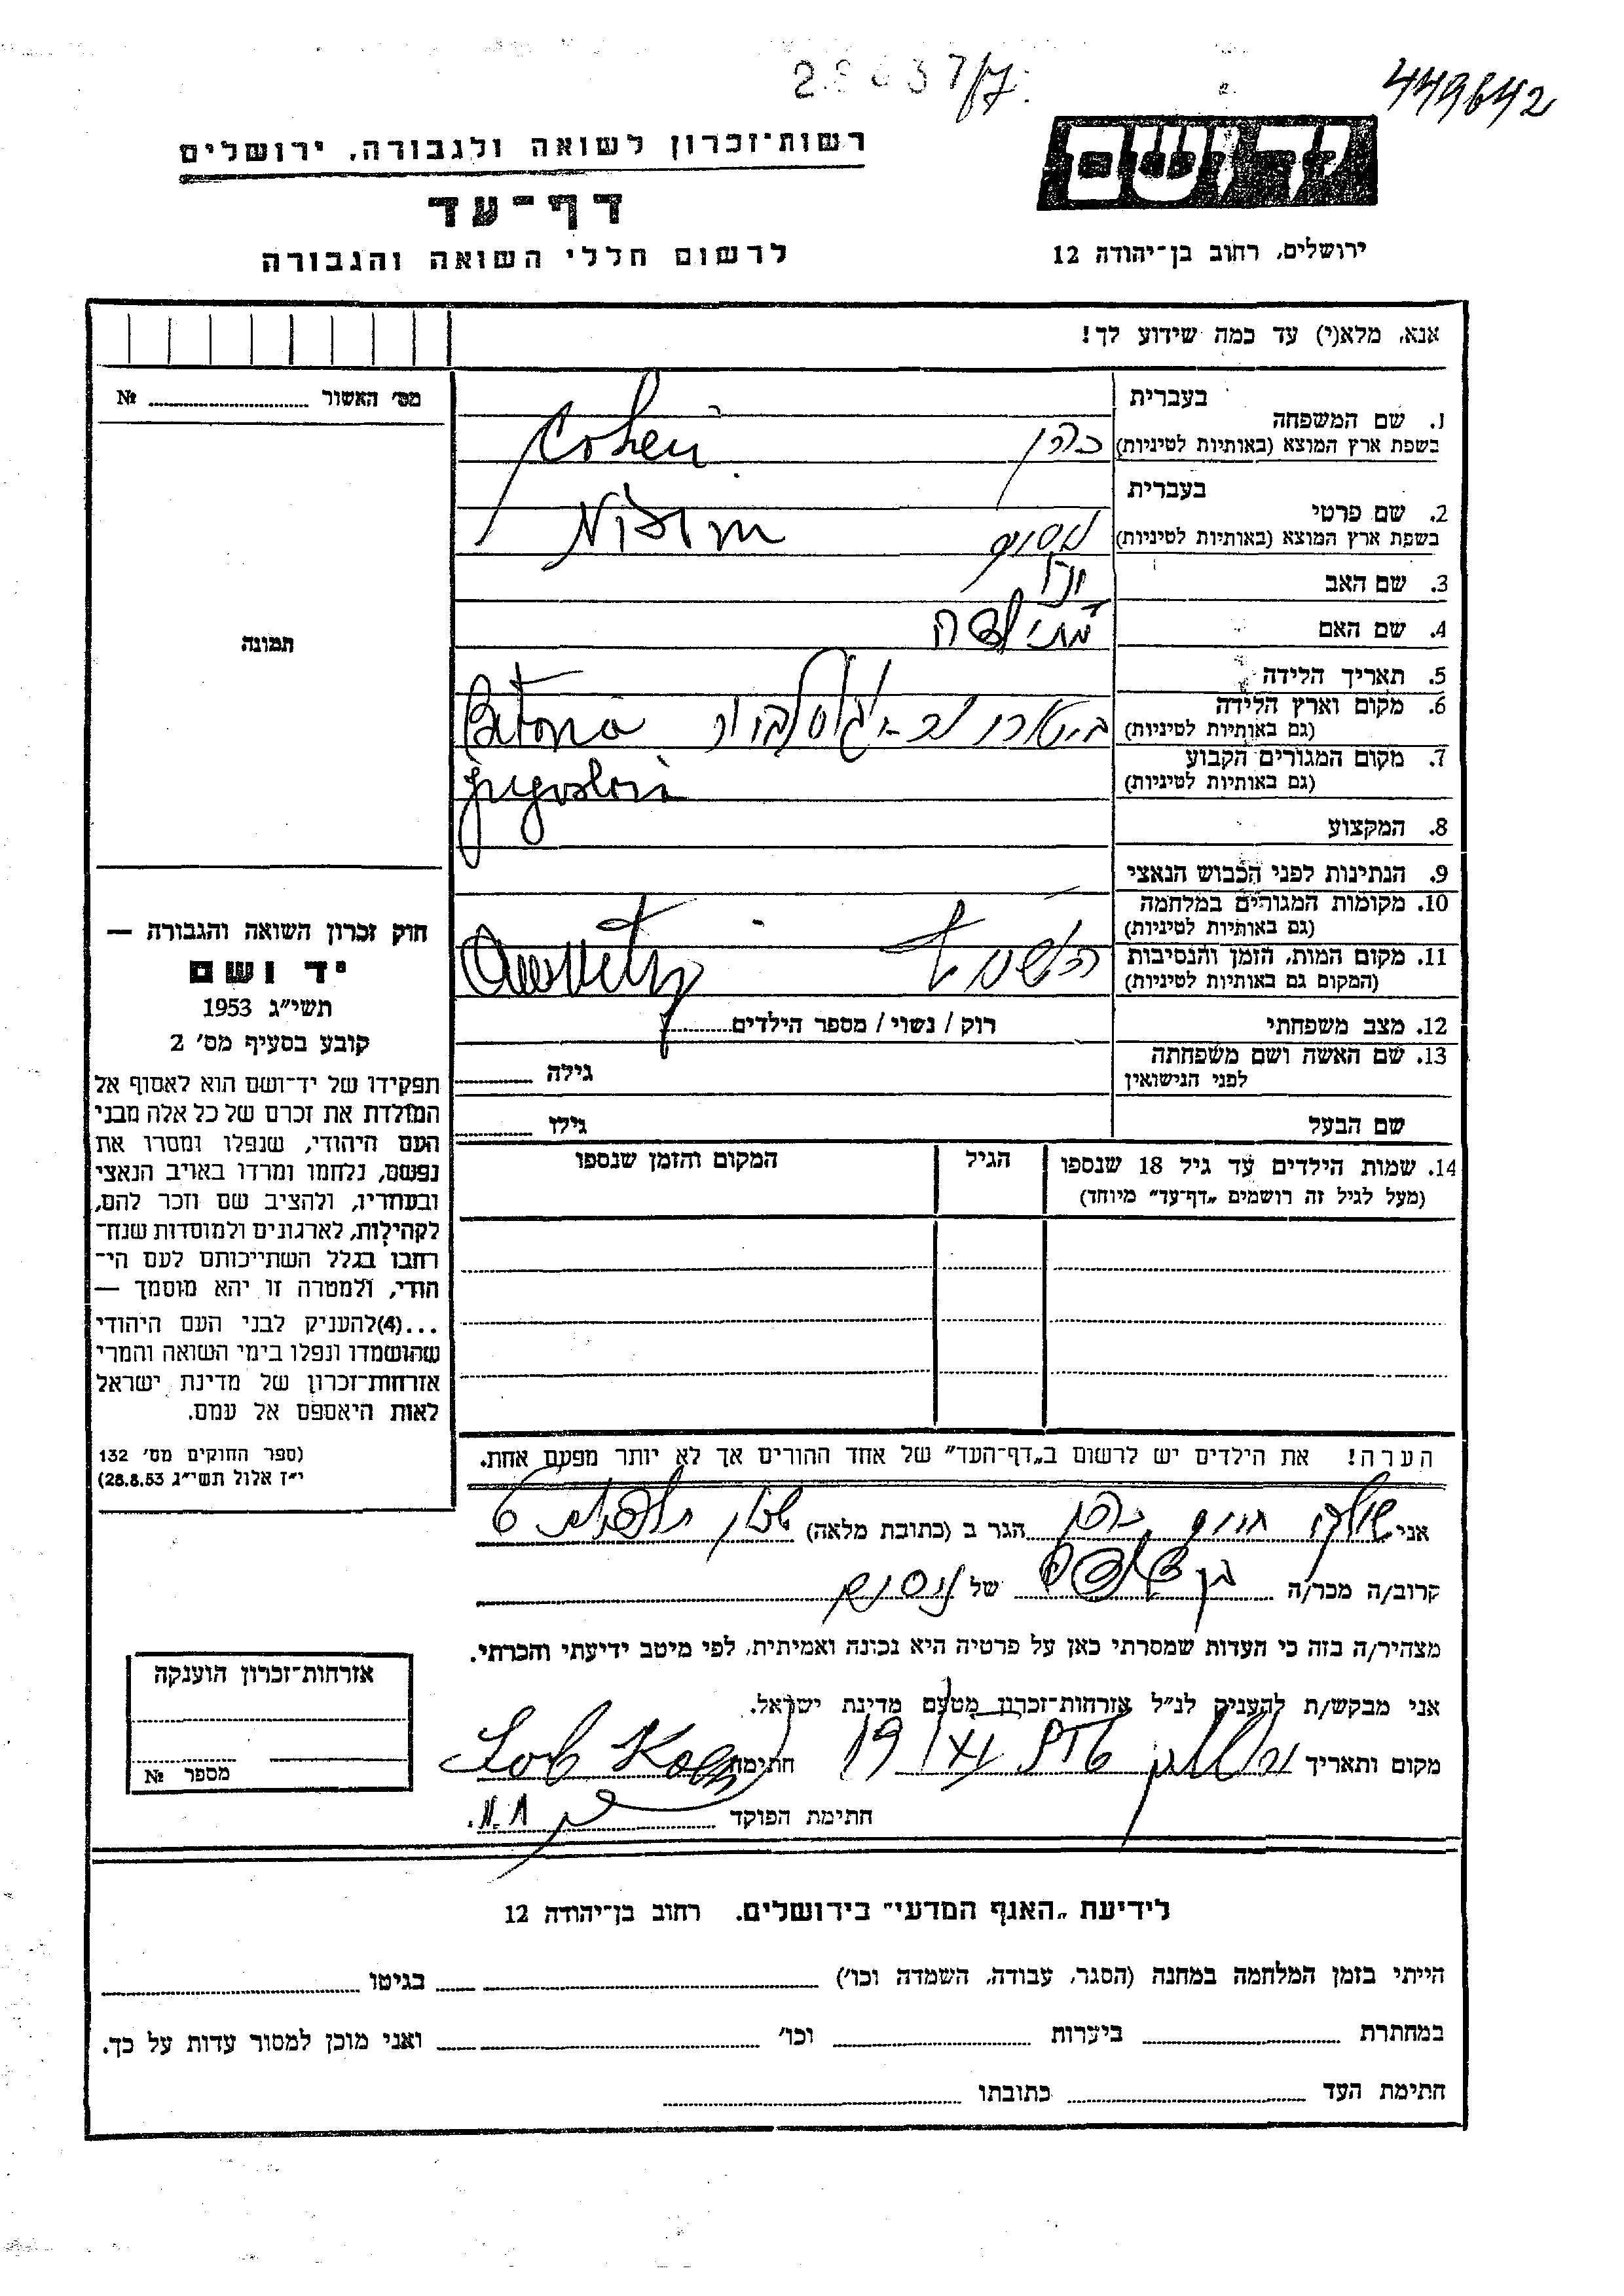 449642
רשות־זכרון לשואה ולגבורה, ירושלים
דף־עד
לרשום חללי השואה והגבורה
יד ושם
ירושלים, רחוב בן־יהודה 12
אנא, מלא(י) עד כמה שידוע לך!
מס' האשור № 
תמונה
1. שם המשפחה
בעברית
בשפת ארץ המוצא (באותיות לטיניות)
כהן Cohen
2. שם פרטי
בעברית
בשפת ארץ המוצא (באותיות לטיניות)
נסים Nisim
3. שם האב
4. שם האם
מתילדה
5. תאריך הלידה
6. מקום וארץ הלידה
(גם באותיות לטיניות)
Bitona
7. מקום המגורים הקבוע
(גם באותיות לטיניות)
8. המקצוע
9. הנתינות לפני הכבוש הנאצי
10. מקומות המגורים במלחמה
(גם באותיות לטיניות)
11. מקום המות, הזמן והנסיבות
(המקום גם באותיות לטיניות)
12. מצב משפחתי
רוק / נשוי / מספר הילדים
13. שם האשה ושם משפחתה
לפני הנישואין
גילה
שם הבעל
גילו
14. שמות הילדים עד גיל 18 שנספו
(מעל לגיל זה רושמים „דף־עד" מיוחד)
הגיל
המקום והזמן שנספו
חוק זכרון השואה והגבורה —
יד ושם
תשי״ג 1953
קובע בסעיף מס' 2
תפקידו של יד־ושם הוא לאסוף אל
המולדת את זכרם של כל אלה מבני
העם היהודי, שנפלו ומסרו את
נפשם, נלחמו ומרדו באויב הנאצי
ובעוזריו, ולהציב שם וזכר להם,
לקהילות, לארגונים ולמוסדות שנח־
רחבו בגלל השתייכותם לעם הי־
הודי, ולמטרה זו יהא מוסמך —
...(4)להעניק לבני העם היהודי
שהושמדו ונפלו בימי השואה והמרי
אזרחות־זכרון של מדינת ישראל
לאות היאספם אל עמם.
(ספר החוקים מס' 132
י״ז אלול תשי״ג 28.8.53)
הערה! את הילדים יש לרשום ב„דף־העד" של אחד ההורים אך לא יותר מפעם אחת.
אני חיים כהן הגר ב (כתובת מלאה) 6
קרוב/ה מכר/ה בן דוד של ניסים
מצהיר/ה בזה כי העדות שמסרתי כאן על פרטיה היא נכונה ואמיתית, לפי מיטב ידיעתי והכרתי.
אני מבקש/ת להעניק לנ״ל אזרחות־זכרון מטעם מדינת ישראל.
מקום ותאריך חתימה
חתימת הפוקד
אזרחות־זכרון הוענקה
מספר №
לידיעת „האגף המדעי" בירושלים. רחוב בן־יהודה 12
הייתי בזמן המלחמה במחנה (הסגר, עבודה, השמדה וכו') בגיטו
במחתרת ביערות וכו' ואני מוכן למסור עדות על כך.
חתימת העד כתובתו